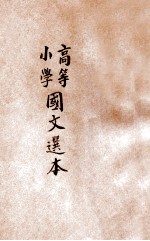 高等
小學
國文選本